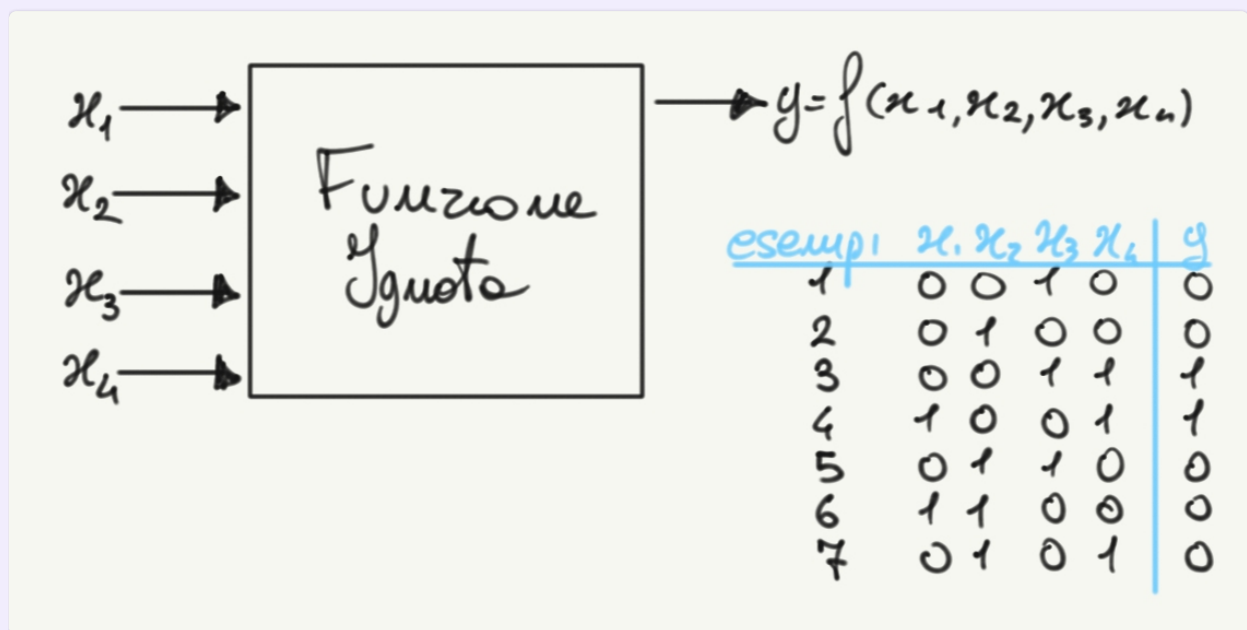 x1
x2
x3
x4
Funzione
Ignota
y = f(x1, x2, x3, x4)
esempi x1 x2 x3 x4 y
1 0 0 1 0 0
2 0 1 0 0 0
3 0 0 1 1 1
4 1 0 0 1 1
5 0 1 1 0 0
6 1 1 0 0 0
7 0 1 0 1 0